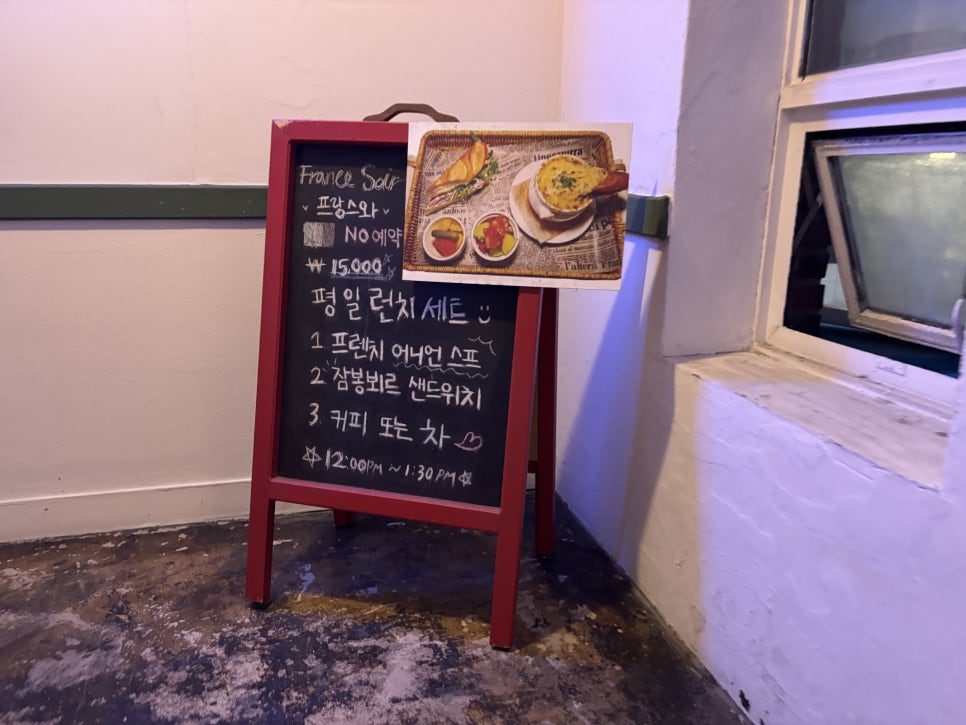 France
프랑스와
NO 예약
₩ 15.000
평일 런치 세트
1. 프렌치 어니언 스프
2. 참봉뵈르 샌드위치
3. 커피 또는 차
12:00PM ~ 1:30PM